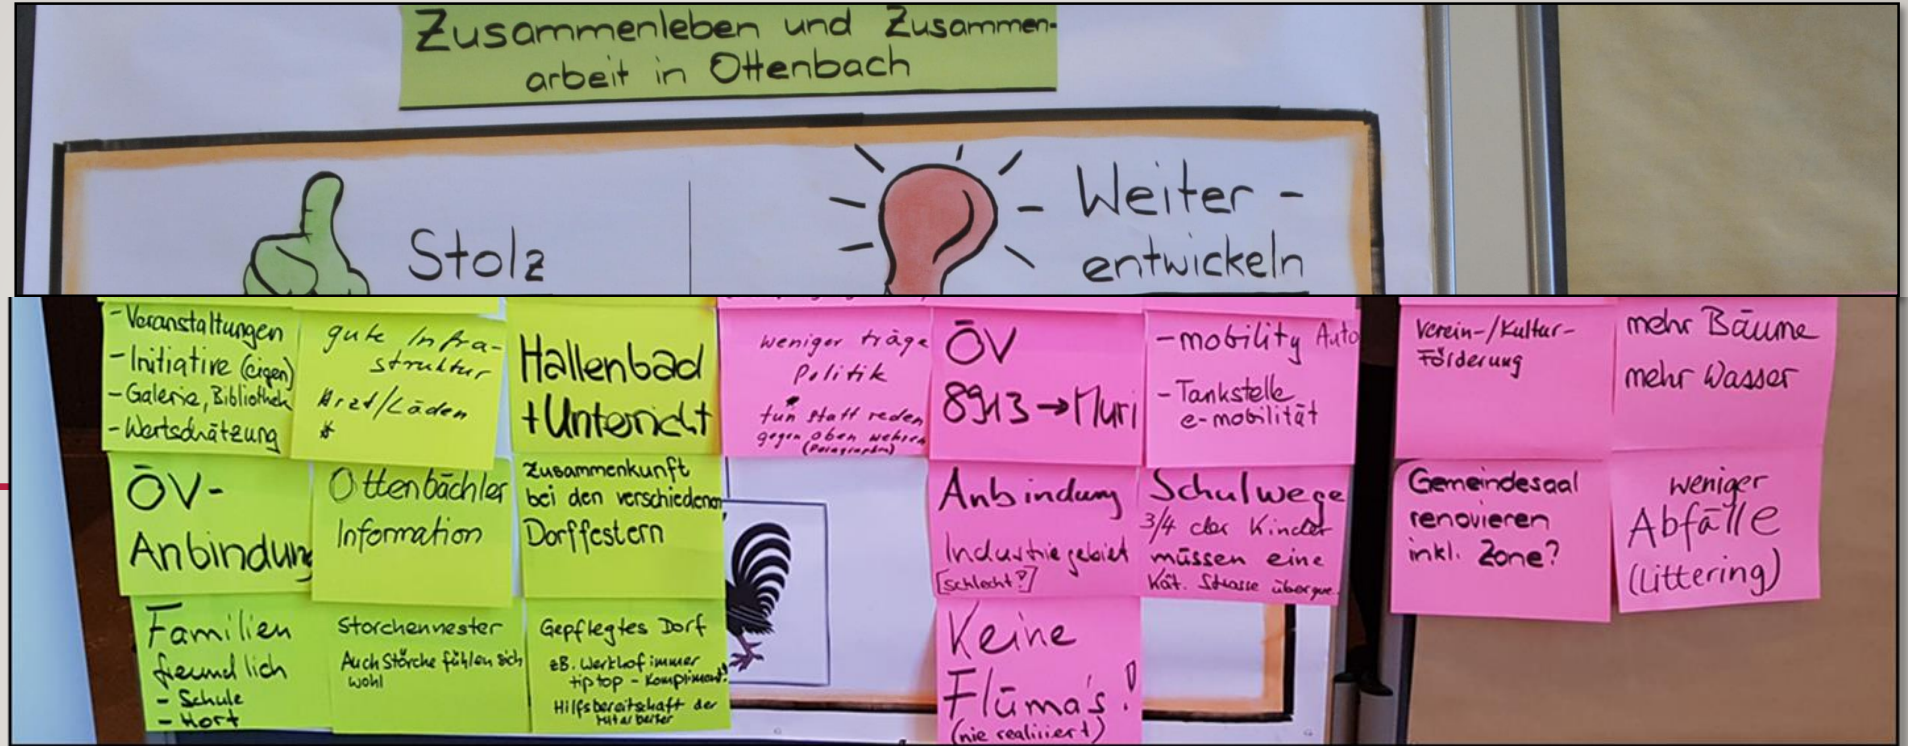 Zusammenleben und Zusammen-
arbeit in Ottenbach
Stolz
Weiter-
entwickeln
- Veranstaltungen
- Initiative (eigen)
- Galerie, Bibliothek
- Wertschätzung
gute Infra-
struktur
Arzt/Läden
*
Hallenbad
+ Unterricht
ÖV-
Anbindung
Ottenbächler
Information
Zusammenkunft
bei den verschiedenen
Dorffestern
Familien
freundlich
- Schule
- Hort
Storchennester
Auch Störche fühlen sich
wohl
Gepflegtes Dorf
zB. Werkhof immer
tip top - Kompliment!
Hilfsbereitschaft der
Mitarbeiter
weniger träge
Politik
tun statt reden
gegen oben wehren
(Paragraphen)
ÖV
8913 → Muri
- mobility Auto
- Tankstelle
e-mobilität
Anbindung
Industriegebiet
[schlecht?]
Schulwege
3/4 der Kinder
müssen eine
Kat. Strasse überque.
Keine
Flüma's!
(nie realisiert)
Verein-/Kultur-
Förderung
mehr Bäume
mehr Wasser
Gemeindesaal
renovieren
inkl. Zone?
weniger
Abfälle
(Littering)